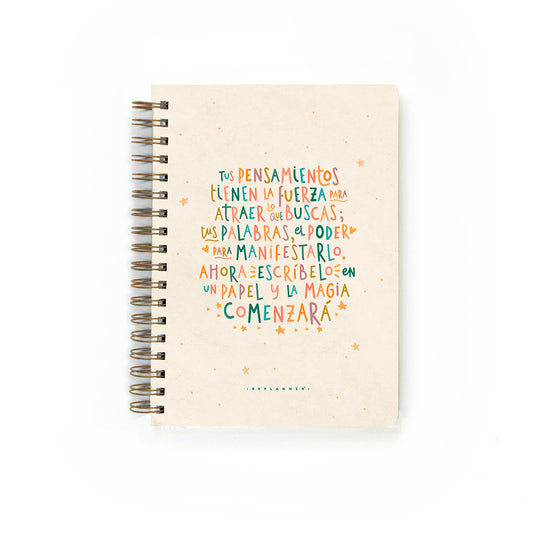 Tus PENSAMIENTOS
tIENEN LA FUERZA PARA
ATRAER LO QUE BUSCAS;
tus PALABRAS, el PODER
PARA MANIFESTARLO.
AHORA ESCRÍBELO en
UN PAPEL Y LA MAGIA
COMENZARÁ
BEPLANNER